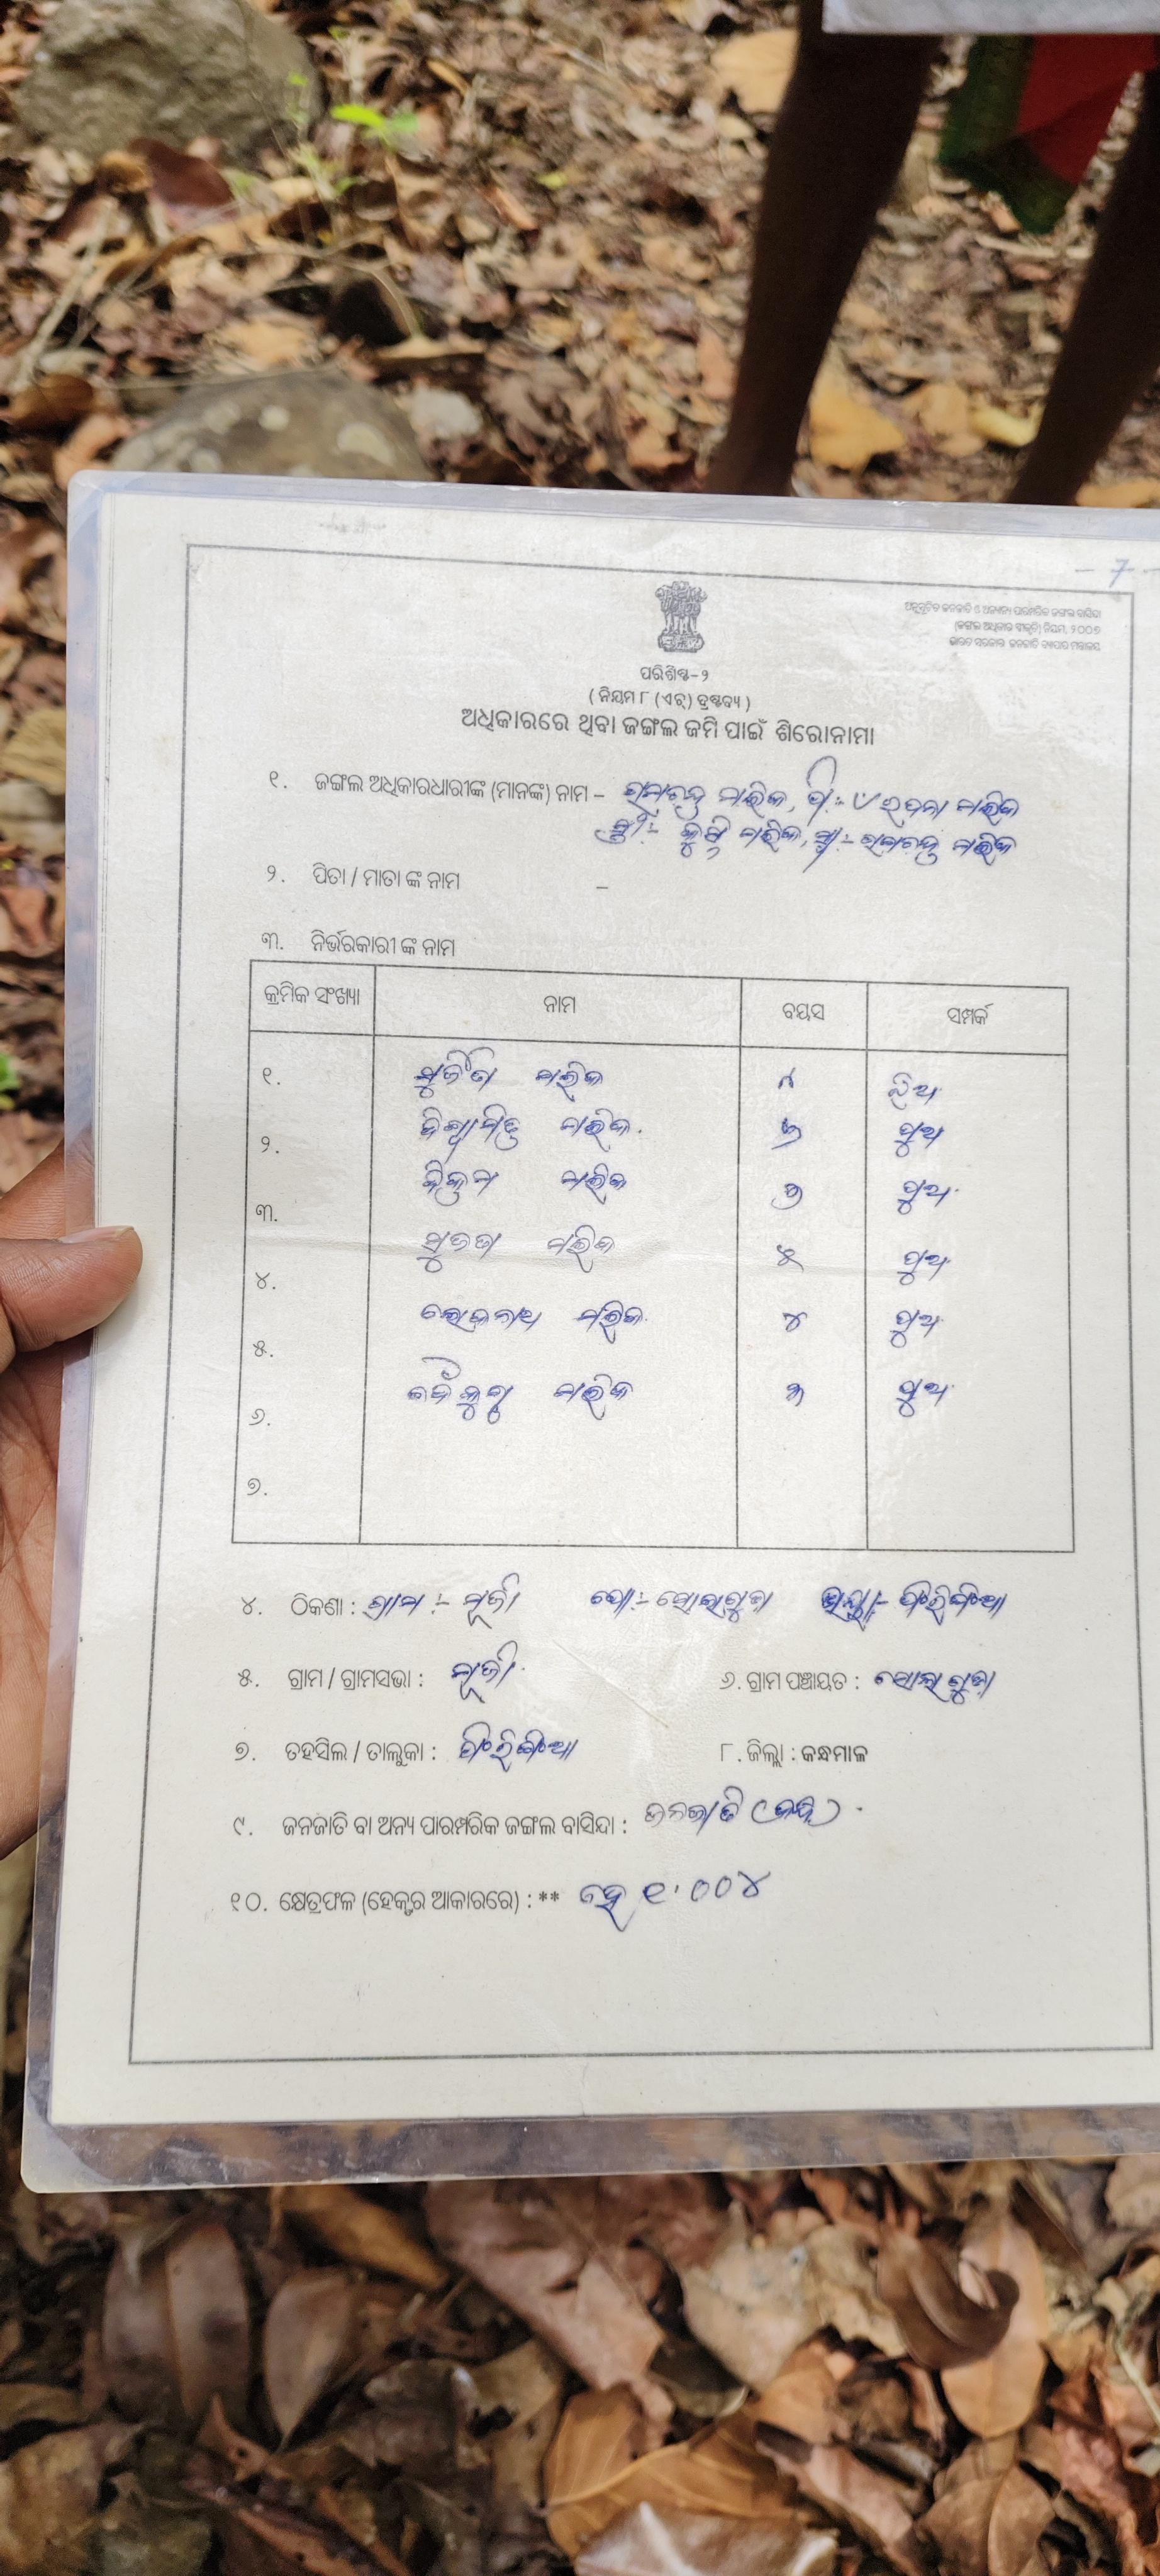 - 7 -
ଅନୁସୂଚିତ ଜନଜାତି ଓ ଅନ୍ୟାନ୍ୟ ପାରମ୍ପରିକ ଜଙ୍ଗଲ ବାସିନ୍ଦା
(ଜଙ୍ଗଲ ଅଧିକାର ସ୍ୱୀକୃତି) ନିୟମ, ୨୦୦୭
ଭାରତ ସରକାର ଜନଜାତି ବ୍ୟାପାର ମନ୍ତ୍ରାଳୟ
ପରିଶିଷ୍ଟ-୨
( ନିୟମ ୮ (ଏଚ୍) ଦ୍ରଷ୍ଟବ୍ୟ )
ଅଧିକାରରେ ଥିବା ଜଙ୍ଗଲ ଜମି ପାଇଁ ଶିରୋନାମା
୧. ଜଙ୍ଗଲ ଅଧିକାରଧାରୀଙ୍କ (ମାନଙ୍କ) ନାମ – ରାମଚନ୍ଦ୍ର ମଲିକ, ପି:- ମଲିକ
ସ୍ତ୍ରୀ:- ମଲିକ, ସ୍ୱା:- ରାମଚନ୍ଦ୍ର ମଲିକ
୨. ପିତା / ମାତା ଙ୍କ ନାମ –
୩. ନିର୍ଭରକାରୀ ଙ୍କ ନାମ
କ୍ରମିକ ସଂଖ୍ୟା ନାମ ବୟସ ସମ୍ପର୍କ
୧. ସୁଜିତା ମଲିକ ୯ ଝିଅ
୨. ବିଶ୍ୱାମିତ୍ର ମଲିକ ପୁଅ
୩. ବିକ୍ରମ ମଲିକ ୭ ପୁଅ
୪. ମଲିକ ୫ ପୁଅ
୫. ଲୋକନାଥ ମଲିକ ୪ ପୁଅ
୬. ବୈକୁଣ୍ଠ ମଲିକ ୩ ପୁଅ
୭.
୪. ଠିକଣା : ଗ୍ରାମ :- ପୋ:- ସୋଲାଗୁଡା ଫିରିଙ୍ଗିଆ
୫. ଗ୍ରାମ / ଗ୍ରାମସଭା :
୬. ଗ୍ରାମ ପଞ୍ଚାୟତ : ସୋଲାଗୁଡା
୭. ତହସିଲ / ତାଲୁକା : ଫିରିଙ୍ଗିଆ
୮. ଜିଲ୍ଲା : କନ୍ଧମାଳ
୯. ଜନଜାତି ବା ଅନ୍ୟ ପାରମ୍ପରିକ ଜଙ୍ଗଲ ବାସିନ୍ଦା : ଜନଜାତି (କନ୍ଧ)
୧୦. କ୍ଷେତ୍ରଫଳ (ହେକ୍ଟର ଆକାରରେ) : ** ହେ ୧.୦୦୪